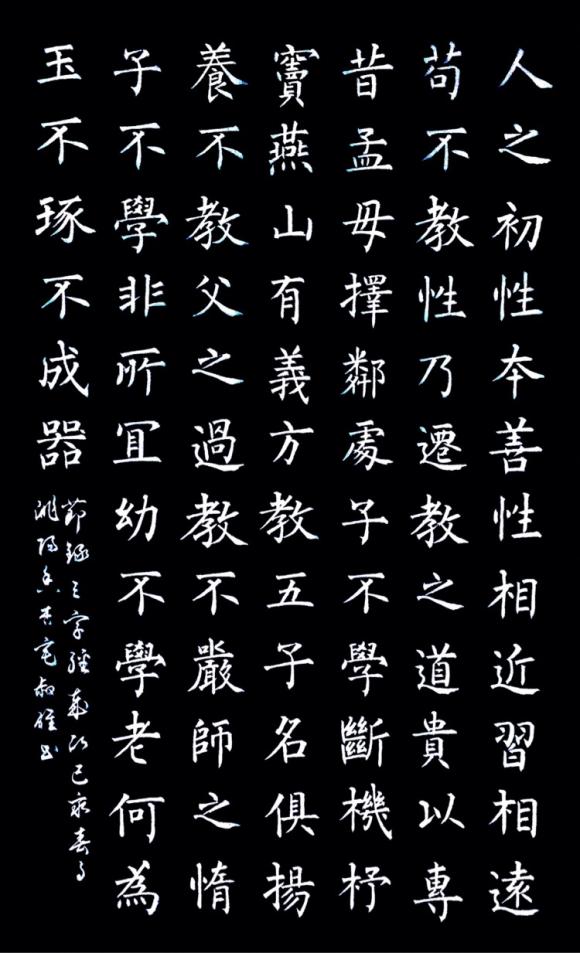 人之初性本善性相近習相遠
苟不教性乃遷教之道貴以專
昔孟母擇鄰處子不學斷機杼
竇燕山有義方教五子名俱揚
養不教父之過教不嚴師之惰
子不學非所宜幼不學老何為
玉不琢不成器
節錄三字經歲次己亥春月
洮陽 書